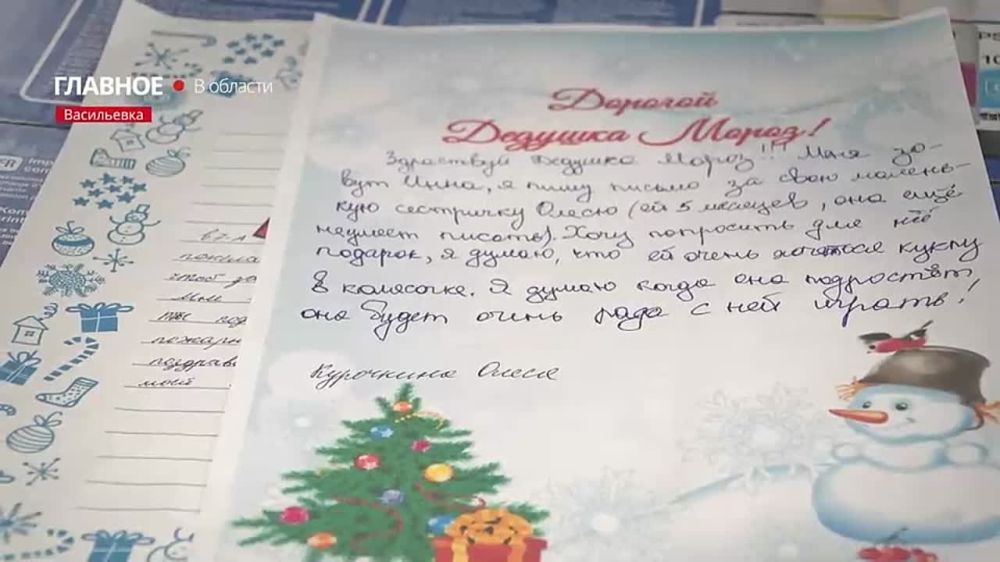 ГЛАВНОЕ • В области
Васильевка
Дорогой
Дедушка Мороз!
Здраствуй Дедушка Мороз!!! Меня зо-
вут Инна, я пишу письмо за свою малень-
кую сестричку Олесю (ей 5 месяцев, она ещё
неумеет писать). Хочу попросить для неё
подарок, я думаю, что ей очень хочется куклу
в колясочке. Я думаю когда она подростёт,
она будет очень рада с ней играть!
Курочкина Олеся
моей